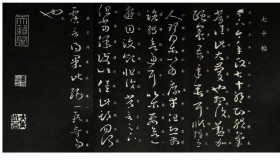 七十帖
足下今年政七十耶知體氣
常佳此大慶也想復勤加
頤養吾年垂耳順推之
人理得爾以為厚幸但恐前
路轉欲逼耳以爾要欲一
遊目汶領非復常言足下
但當保護以俟此期勿謂
虛言得果此緣一段奇事
也